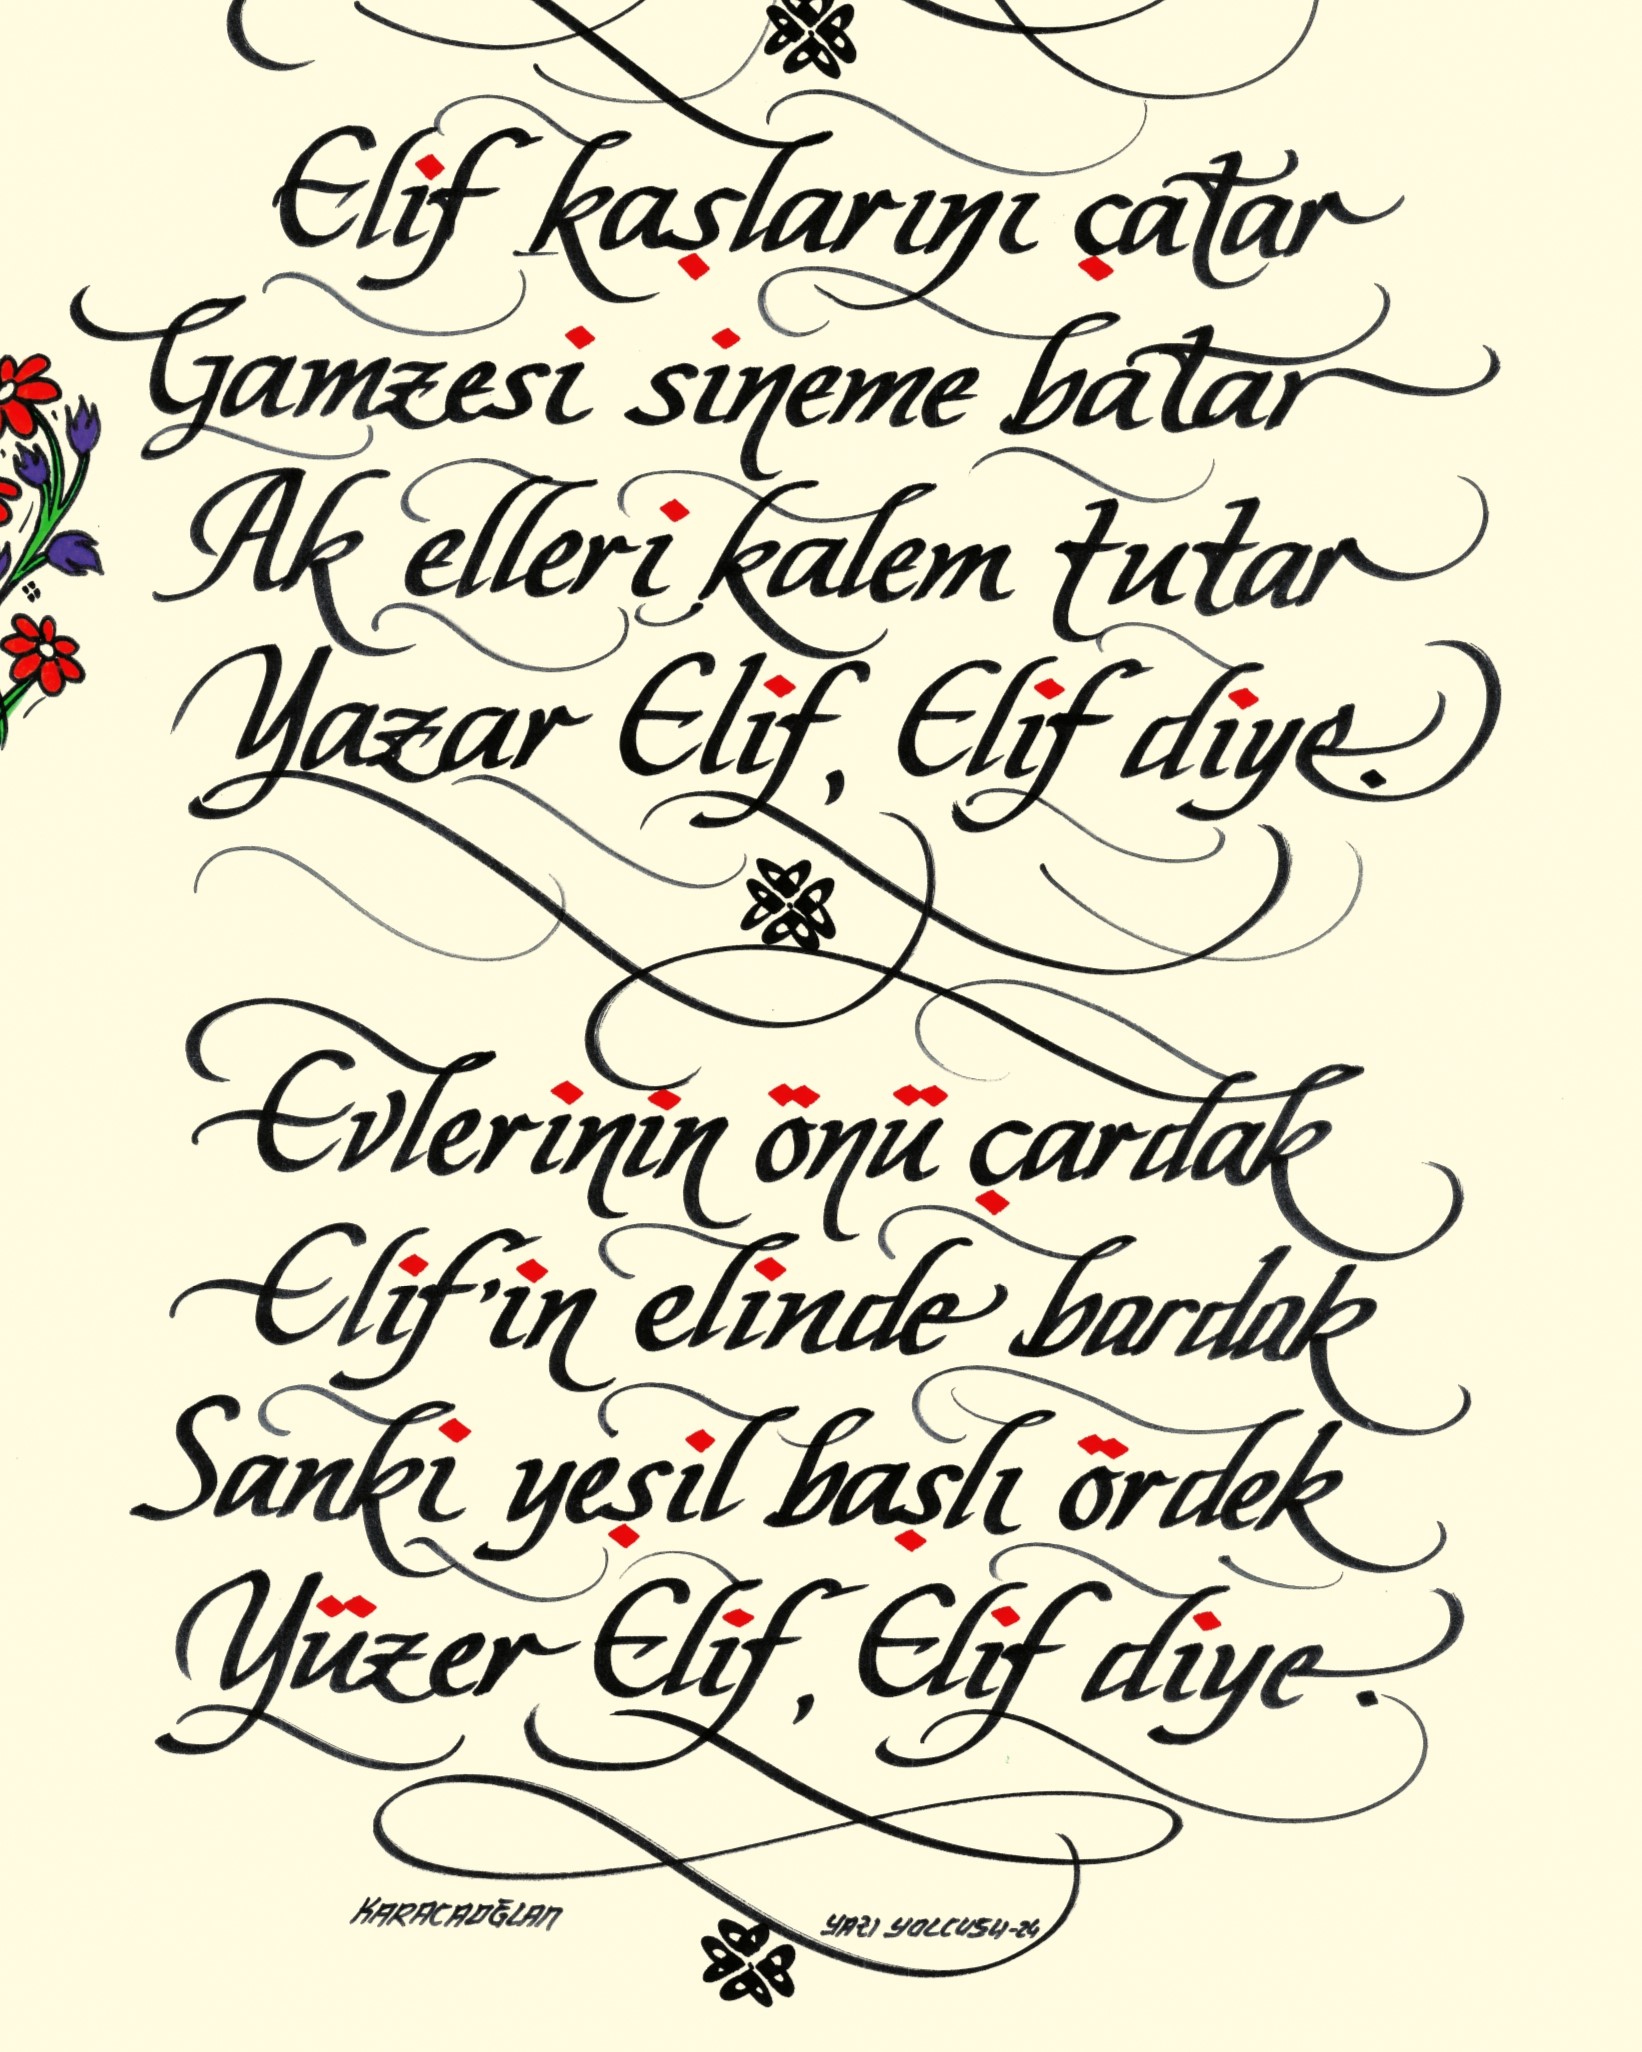 Elif kaşlarını çatar
Gamzesi sineme batar
Ak elleri kalem tutar
Yazar Elif, Elif diye.
Evlerinin önü çardak
Elif'in elinde bardak
Sanki yeşil başlı ördek
Yüzer Elif, Elif diye.
KARACAOĞLAN
YAZI YOLCUSU-24